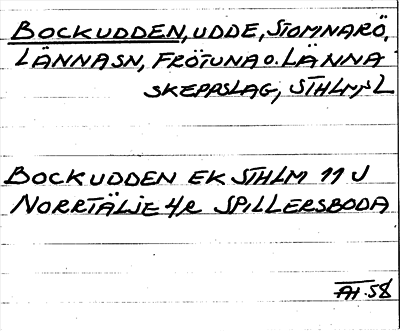 BOCKUDDEN, UDDE, STOMNARÖ,
LÄNNA SN, FRÖTUNA O. LÄNNA
SKEPPSLAG, STHLMS L
BOCKUDDEN EK STHLM 11 J
NORRTÄLJE 4R SPILLERSBODA
AT. 58